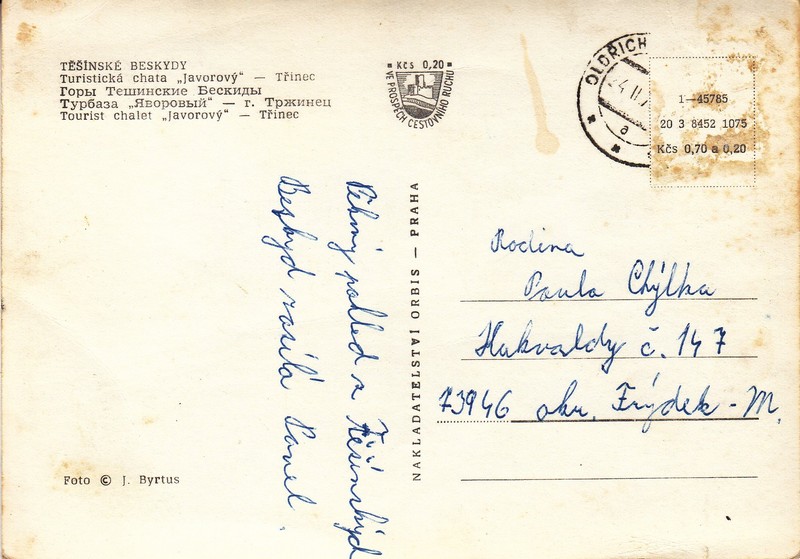 TĚŠÍNSKÉ BESKYDY
Turistická chata „Javorový“ — Třinec
Горы Тешинские Бескиды
Турбаза „Яворовый“ — г. Тржинец
Tourist chalet „Javorový“ — Třinec
Kčs 0,20
VE PROSPĚCH CESTOVNÍHO RUCHU
OLDŘICH
1—45785
20 3 8452 1075
Kčs 0,70 a 0,20
Pěkný pohled z Těšínských
Beskyd zasílá Pavel.
NAKLADATELSTVÍ ORBIS — PRAHA
Rodina
Pavla Chýlka
Hukvaldy č. 147
73946 okr. Frýdek-M.
Foto © J. Byrtus